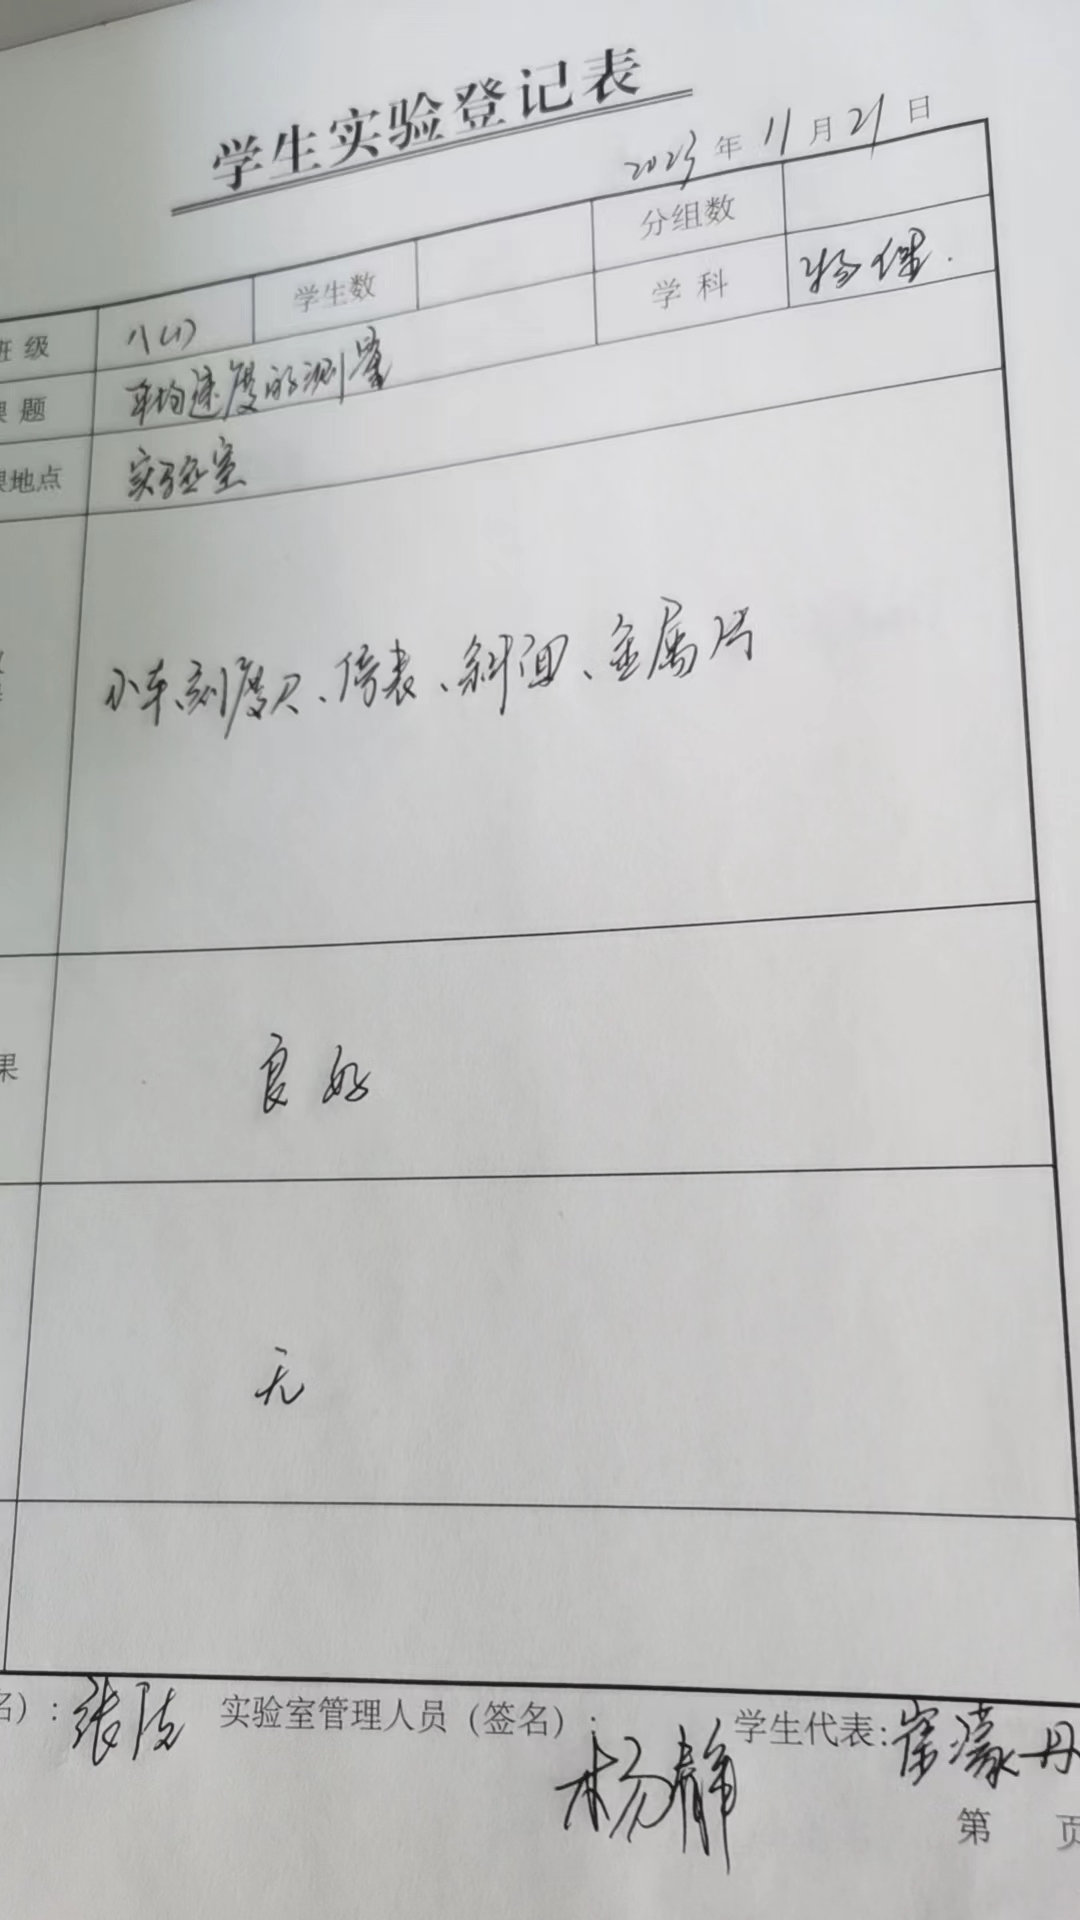 学生实验登记表
2023年11月21日
分组数
班级 八(1) 学生数 学科 物理.
课题 平均速度的测量
课地点 实验室
小车、刻度尺、停表、斜面、金属片
果 良好
无
名）： 实验室管理人员（签名）：杨静 学生代表:崔濛丹
第 页